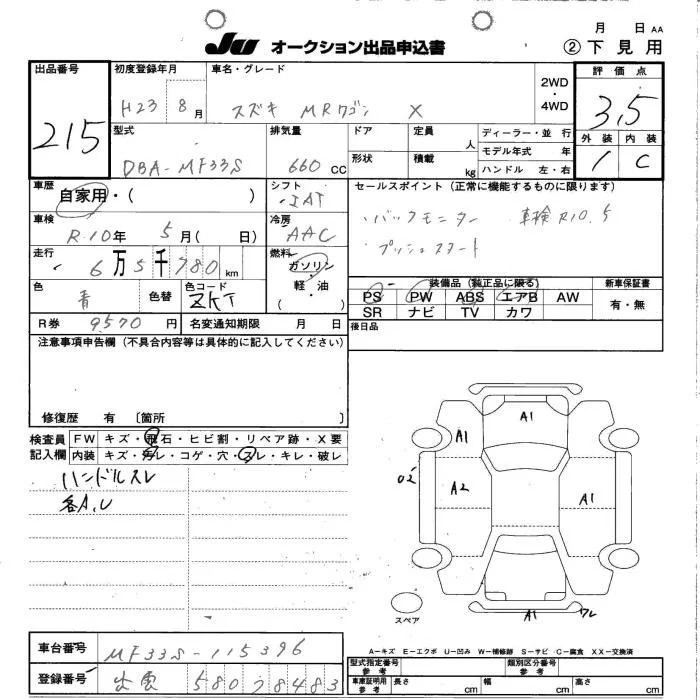 月 日 AA
JU オークション出品申込書 ② 下見用
出品番号 215
初度登録年月 H23 8月
車名・グレード スズキ MRワゴン X
2WD・4WD
評価点 3.5
外装 1 内装 C
型式 DBA-MF33S
排気量 660 CC
ドア 定員 人
形状 積載 kg
ディーラー・並行
モデル年式 年
ハンドル 左・右
車歴 自家用・( )
シフト IAT
セールスポイント(正常に機能するものに限ります)
・バックモニター 車検R10.5
・プッシュスタート
車検 R.10年 5月( 日)
冷房 AAC
走行 6万5千780km
燃料 ガソリン・軽油・( )
色 青 色替
色コード ZKT
装備品(純正品に限る)
PS PW ABS エアB AW
SR ナビ TV カワ
新車保証書 有・無
R券 9570円 名変通知期限 月 日
後日品
注意事項申告欄(不具合内容等は具体的に記入してください)
修復歴 有 〔箇所 〕
検査員記入欄
FW キズ・飛石・ヒビ割・リペア跡・X要
内装 キズ・汚レ・コゲ・穴・スレ・キレ・破レ
ハンドルスレ
各A,U
A1
A1
A2
A1
A1
スペア
A-キズ E-エクボ U-凹み W-補修跡 S-サビ C-腐食 XX-交換済
車台番号 MF33S-115396
登録番号 出雲 580 78483
型式指定番号 参考
類別区分番号 参考
車庫証明用参考 長さ cm 幅 cm 高さ cm